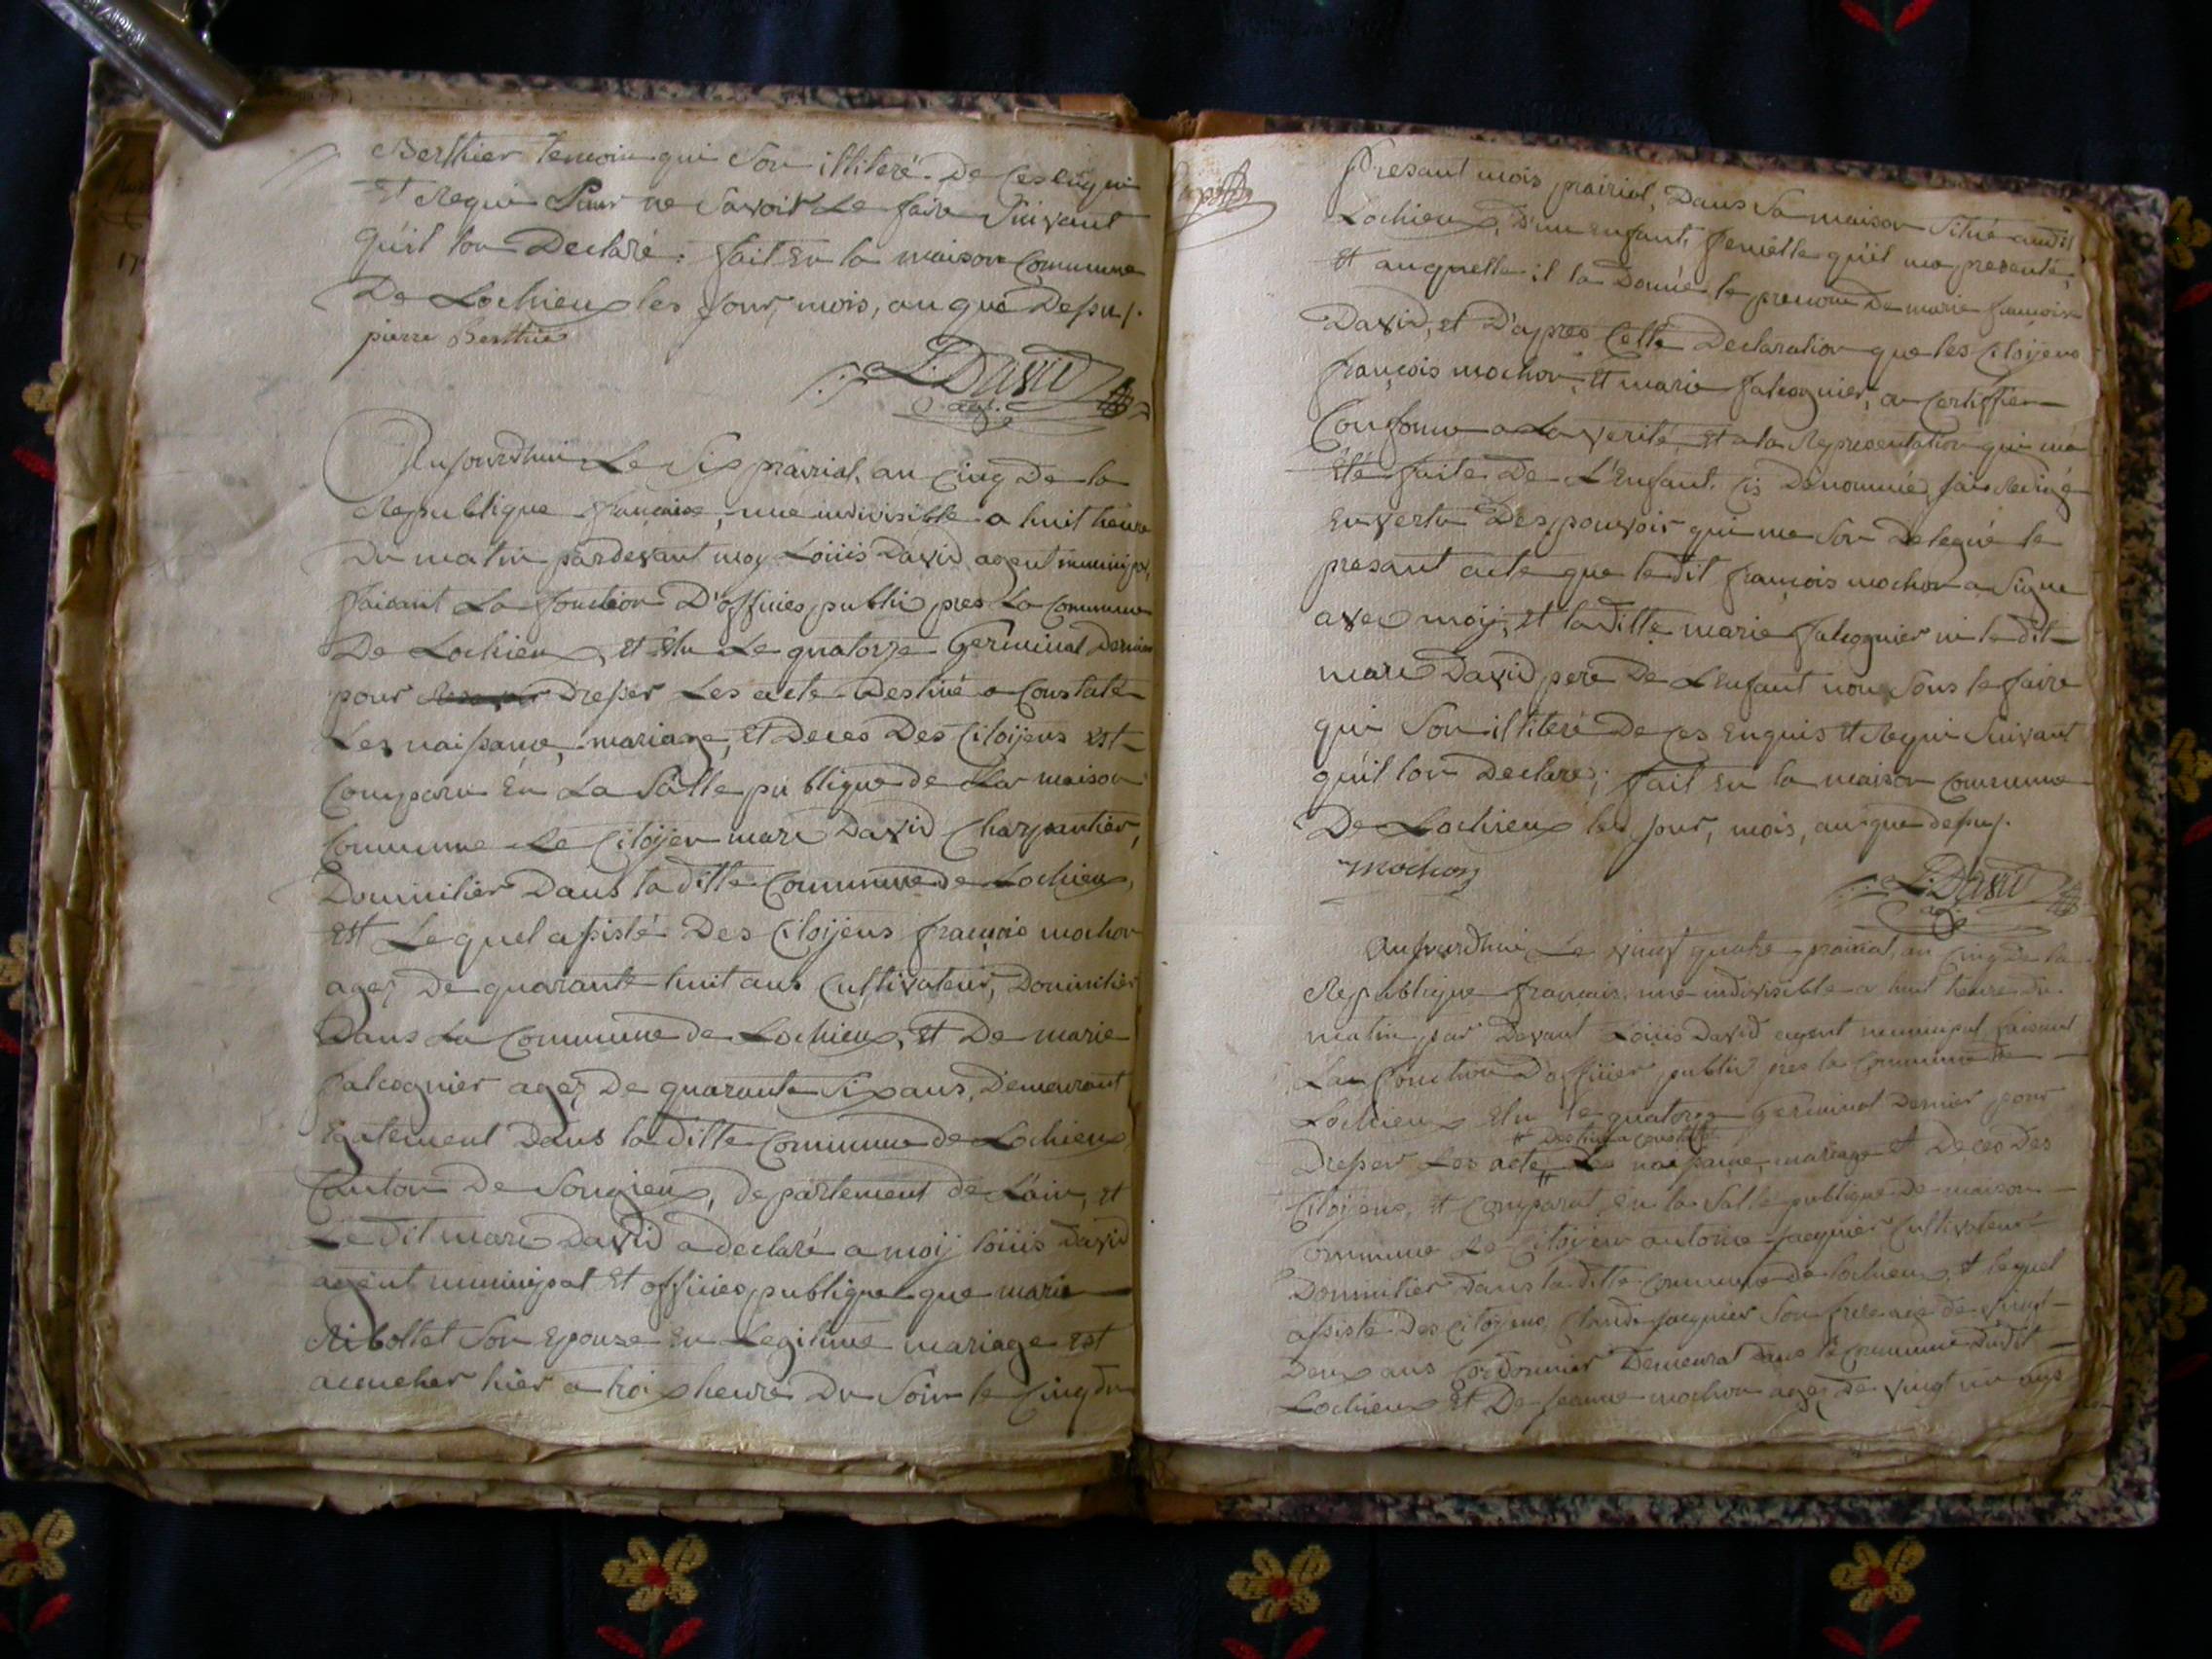 Berthier temoin qui Son illiteré De Ces enqui
et Requi Pour ne Savoir Le faire Suivant
quil lon Declaré. fait En la maison Commune
De Lochieux les Jour, mois, an que Dessus.
pierre Berthier
L. David
agt.
Aujourdhui Le Six prairial, an Cinq De la
Republique française, une indivisible a huit heure
Du matin pardevant moy Loüis David agent municipal,
faisant La fonction D'officier public pres La Commune
De Lochieux, et Elu Le quatorze Germinal Dernier
pour Dresser Les acte Destiné a Constaté
Les naissance, mariage, et Deces Des Citoijens est
Comparu En La Salle publique de La maison
Commune Le Citoijen marc David Charpantier,
Domicilier Dans la ditte Commune de Lochieux,
Est Lequel assisté Des Citoijens françois mochon
agez De quarante huit ans Cultivateur, Domicilier
Dans La Commune de Lochieux, et De marie
falcognier agez De quarante Six ans, Demeurant
Egalement Dans la ditte Commune de Lochieux
Canton De Songieux, departement de L'ain, et
Le dit marc David a declaré a moij loüis David
agent municipal et officier publique que marie
Ribollet Son Epouse En Legitime mariage est
acoucher hier a troix heure Du Soir le Cinq du
Presant mois prairial, Dans Sa maison Situé audit
Lochieux, D'un enfant femelle quil ma presenté,
et auquelle il la Donné le prenom De marie françoise
David, et D'apres Cette Declaration que les Citoijens
françois mochon, et marie falcognier, on Certiffier
Conforme a La verité, et a la Representation qui ma
Eté faite De L'Enfant. Cis Denommé, Jai Redigé
En vertu Des pouvoir qui me Son Delegué le
presant acte que le dit françois mochon a Signe
avec moij, et la ditte marie falcognier ni le dit
marc David pere De L'Enfant non Sous le faire
qui Son illiteré De ces Enquis et Requi Suivant
quil lon Declaré; fait En la maison Commune
De Lochieux les Jour, mois, an que dessus.
mochon
L. David
agt
Aujourdhui Le vingt quatre prairial, an Cinq De la
Republique française, une indivisible a huit heure Du
matin par Devant Loüis David agent municipal faisant
La Fonction D'officier public pres la Commune De
Lochieux Elu le quatorze Germinal Dernier pour
Destiné a constaté
Dresser Les acte Les naissance, mariage et Deces Des
Citoijens, et Comparut En la Salle publique De maison
Commune Le Citoijen antoine Jacquier Cultivateur
Domicilier Dans la ditte Commune de Lochieux, et lequel
assisté Des Citoijens, Claude Jacquier Son frere agé de vingt
Deux ans Cordonnier Demeurat Dans la Commune Dudit
Lochieux et De Jeanne mochon agez De vingt un ans